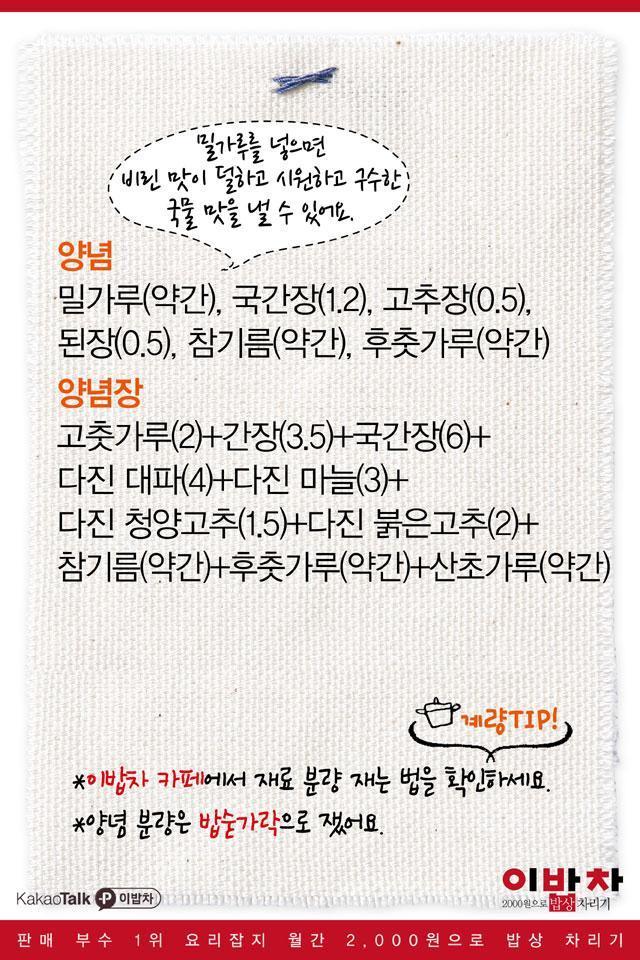 밀가루를 넣으면
비린 맛이 덜하고 시원하고 구수한
국물 맛을 낼 수 있어요.
양념
밀가루(약간), 국간장(1.2), 고추장(0.5),
된장(0.5), 참기름(약간), 후춧가루(약간)
양념장
고춧가루(2)+간장(3.5)+국간장(6)+
다진 대파(4)+다진 마늘(3)+
다진 청양고추(1.5)+다진 붉은고추(2)+
참기름(약간)+후춧가루(약간)+산초가루(약간)
계량TIP!
*이밥차 카페에서 재료 분량 재는 법을 확인하세요.
*양념 분량은 밥숟가락으로 쟀어요.
KakaoTalk P 이밥차
이밥차
2000원으로 밥상 차리기
판매 부수 1위 요리잡지 월간 2,000원으로 밥상 차리기